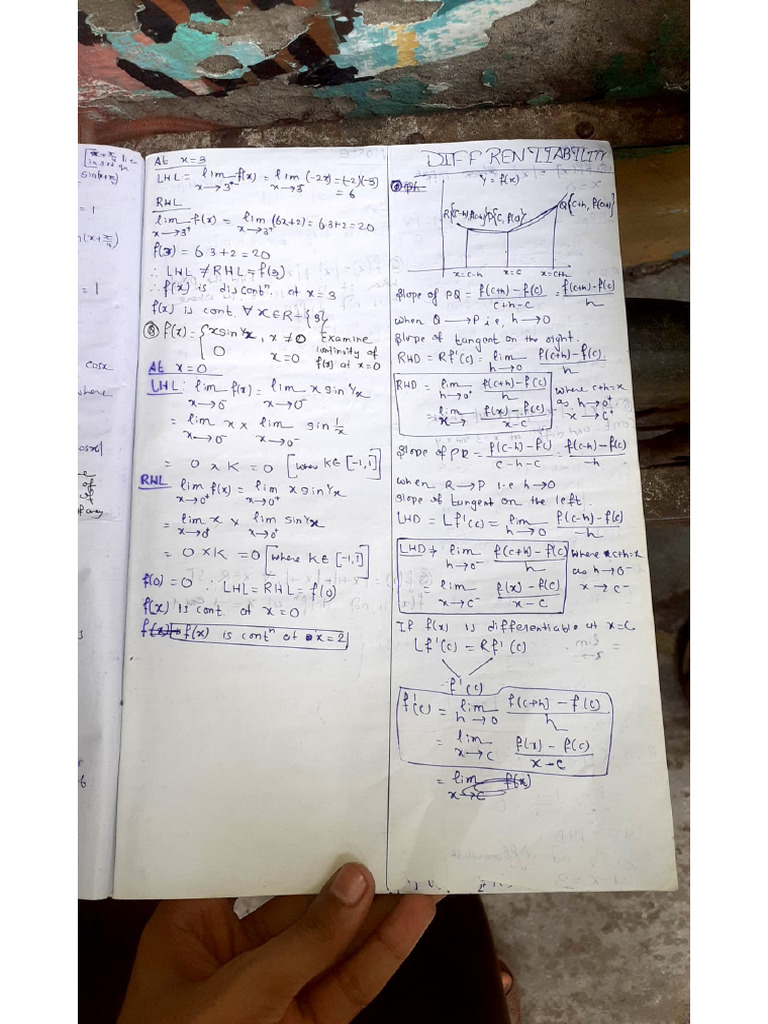 sin(x+π/4)
= 1
(x+π/4)
= 1
cosx
where
cosx|
of
At x=3
LHL = lim f(x) = lim (-2x) = (-2)(-3)
x→3⁻ x→3⁻ = 6
RHL
lim f(x) = lim (6x+2) = 6·3+2 = 20
x→3⁺ x→3⁺
f(3) = 6·3+2 = 20
∴ LHL ≠ RHL = f(3)
∴ f(x) is disContⁿ at x = 3
f(x) is cont. ∀ x∈R-{3}
f(x) = {xsin 1/x , x ≠ 0 Examine
0 x=0 continuity of
f(x) at x=0
At x=0
LHL: lim f(x) = lim x sin 1/x
x→0⁻ x→0⁻
= lim x × lim sin 1/x
x→0⁻ x→0⁻
= 0 × K = 0 [where K∈[-1,1]
RHL lim f(x) = lim x sin 1/x
x→0⁺ x→0⁺
= lim x × lim sin 1/x
x→0⁺ x→0⁺
= 0×K = 0 [where K∈[-1,1]
f(0) = 0 ∴ LHL = RHL = f(0)
f(x) is cont. at x = 0
f(x) is contⁿ at x = 2
DIFFRENTIABILITY
Y = f(x)
R{c-h, f(c-h)} P{c, f(c)} Q{c+h, f(c+h)}
x=c-h x=c x=c+h
Slope of PQ = f(c+h)-f(c) / c+h-c = f(c+h)-f(c) / h
when Q→P i.e, h→0
Slope of tangent on the right.
RHD = Rf'(c) = lim f(c+h)-f(c) / h
h→0
RHD = lim f(c+h)-f(c) / h where c+h=x
h→0⁺ as h→0⁺
= lim f(x)-f(c) / x-c x→c⁺
x→
Slope of PR = f(c-h)-f(c) / c-h-c = f(c-h)-f(c) / -h
when R→P i.e h→0
Slope of tangent on the left.
LHD = Lf'(c) = lim f(c-h)-f(c) / -h
h→0
LHD = lim f(c+h)-f(c) / h where c+h=x
h→0⁻ as h→0⁻
= lim f(x)-f(c) / x-c x→c⁻
x→c⁻
If f(x) is differentiable at x=c
Lf'(c) = Rf'(c)
f'(c)
f'(c) = lim f(c+h)-f(c) / h
h→0
= lim f(x)-f(c) / x-c
x→c
= lim f(x)
x→c